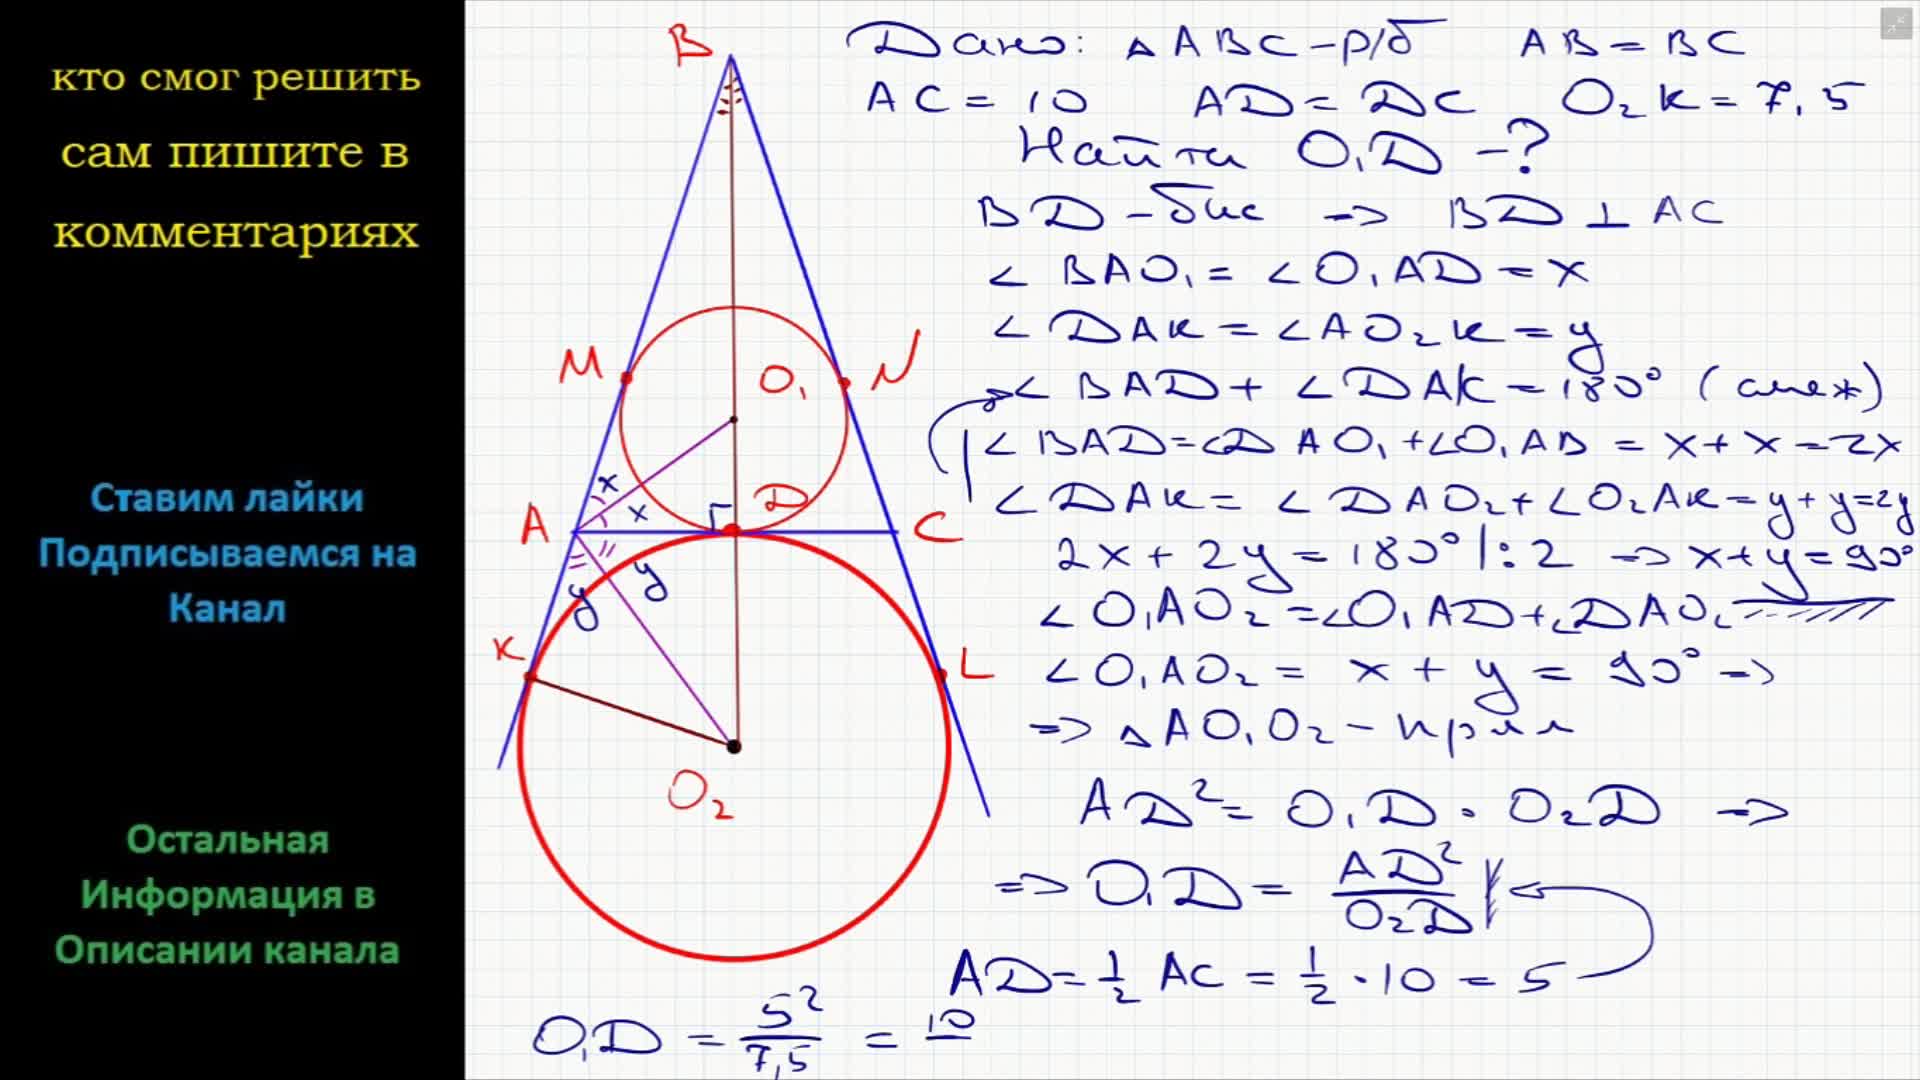 кто смог решить
сам пишите в
комментариях
Ставим лайки
Подписываемся на
Канал
Остальная
Информация в
Описании канала
B
M
N
O₁
x
x
D
A
C
y
y
K
L
O₂
Дано: △ABC - р/б AB = BC
AC = 10 AD = DC O₂K = 7,5
Найти O₁D - ?
BD - бис => BD ⊥ AC
∠ BAO₁ = ∠O₁AD = x
∠ DAK = ∠AO₂K = y
∠ BAD + ∠DAK = 180° (смеж)
∠ BAD = ∠DAO₁ + ∠O₁AB = x + x = 2x
∠ DAK = ∠DAO₂ + ∠O₂AK = y + y = 2y
2x + 2y = 180° |:2 => x + y = 90°
∠O₁AO₂ = ∠O₁AD + ∠DAO₂
∠O₁AO₂ = x + y = 90° =>
=> △AO₁O₂ - прям
AD² = O₁D · O₂D =>
=> O₁D = AD²/O₂D
AD = 1/2 AC = 1/2 · 10 = 5
O₁D = 5²/7,5 = 10